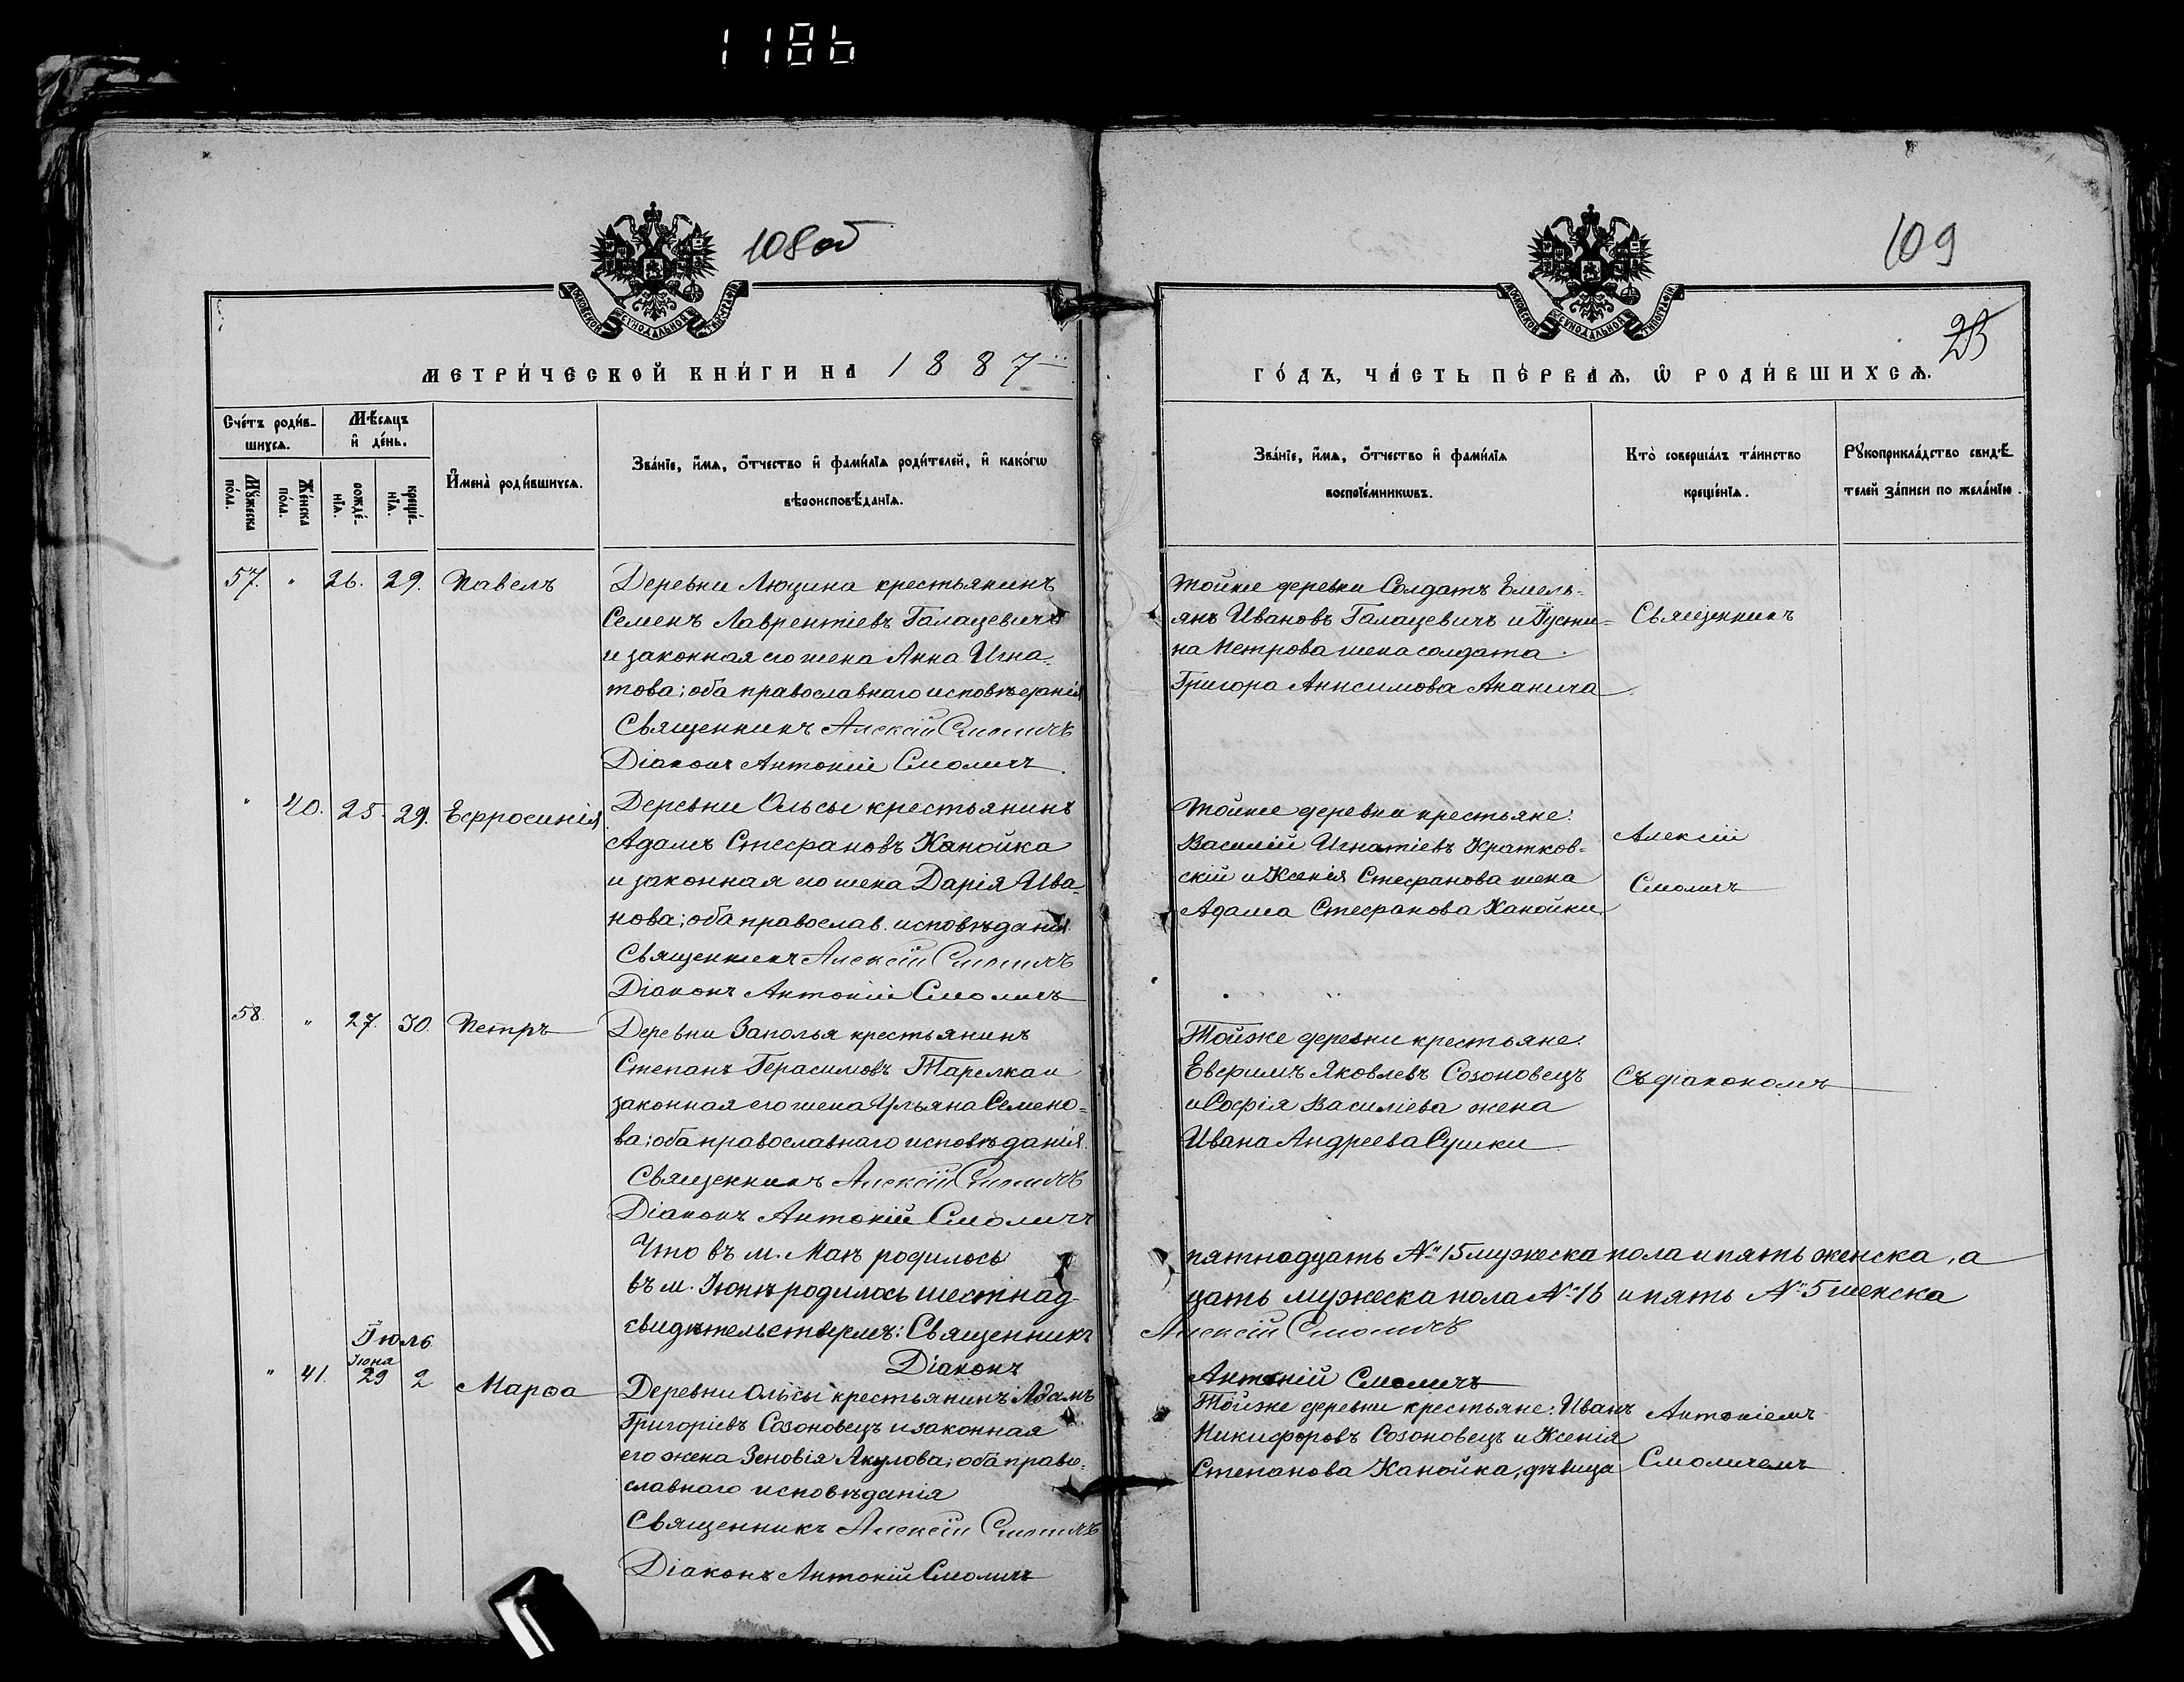 1186
108 об
109
23
МОСКОВСКОЙ СѴНОДАЛЬНОЙ ТИПОГРАФІИ
МОСКОВСКОЙ СѴНОДАЛЬНОЙ ТИПОГРАФІИ
МЕТРИ́ЧЕСКОЙ КНИ́ГИ НА 1887
ГО́ДЪ, ЧА́СТЬ ПЕ́РВАѦ, Ѡ РОДИ́ВШИХСѦ.
Сче́тъ роди́в-
шихсѧ.
Мѣ́сѧцъ
и҆ де́нь.
Мꙋ́жеска
по́ла.
Же́нска
по́ла.
рожде́-
нїѧ.
креще́-
нїѧ.
И҆мена̀ роди́вшихсѧ.
Зва́нїе, и҆́мѧ, ѻ҆́тчество и҆ фами́лїѧ роди́телей, и҆ како́гѡ
вѣроисповѣ́данїѧ.
Зва́нїе, и҆́мѧ, ѻ҆́тчество и҆ фами́лїѧ
воспрїе́мникѡвъ.
Кто̀ соверша́лъ та́инство
креще́нїѧ.
Рꙋкоприкла́дство свидѣ́-
телей за́писи по жела́нїю.
57. " 26. 29. Павелъ
Деревни Люзина крестьянинъ
Семенъ Лаврентіевъ Галацевичъ
и законная его жена Анна Игна-
това; оба православнаго исповѣданія
Священникъ Алексій Смоличъ
Діаконъ Антоній Смоличъ.
Тойже деревни Солдатъ Емель-
янъ Ивановъ Галацевичъ и Іусти-
на Петрова жена солдата
Григора Анисимова Ананича
Священникъ
" 40. 25. 29. Евфросинія
Деревни Ольсы крестьянинъ
Адамъ Стефановъ Канойка
и законная его жена Дарія Ива-
нова; оба православ. исповѣданія
Священникъ Алексій Смоличъ
Діаконъ Антоній Смоличъ
Тойже деревни крестьяне:
Василій Игнатіевъ Кратков-
скій и Ксенія Стефанова жена
Адама Стефанова Канойки
Алексій
Смоличъ
58. " 27. 30. Петръ
Деревни Заполья крестьянинъ
Степанъ Герасимовъ Тарелка и
законная его жена Ульяна Семено-
ва; оба православнаго исповѣданія.
Священникъ Алексій Смоличъ
Діаконъ Антоній Смоличъ
Тойже деревни крестьяне:
Евфимъ Яковлевъ Созоновецъ
и Софія Василіева жена
Ивана Андреева Сушки
Съ діакономъ
Что въ м. Маѣ родилось пятнадцать № 15 мужеска пола и пять женска, а
въ м. Іюнѣ родилось шестнад-цать мужеска пола № 16 и пять № 5 женска
свидѣтельствуемъ: Священникъ Алексій Смоличъ
Діаконъ Антоній Смоличъ
Іюль
Іюня
" 41. 29 2 Марѳа
Деревни Ольсы крестьянинъ Адамъ
Григоріевъ Созоновецъ и законная
его жена Зеновія Акулова; оба право-
славнаго исповѣданія
Священникъ Алексій Смоличъ
Діаконъ Антоній Смоличъ
Тойже деревни крестьяне: Иванъ
Никифоровъ Созоновецъ и Ксенія
Степанова Канойка, дѣвица
Антоніемъ
Смоличемъ